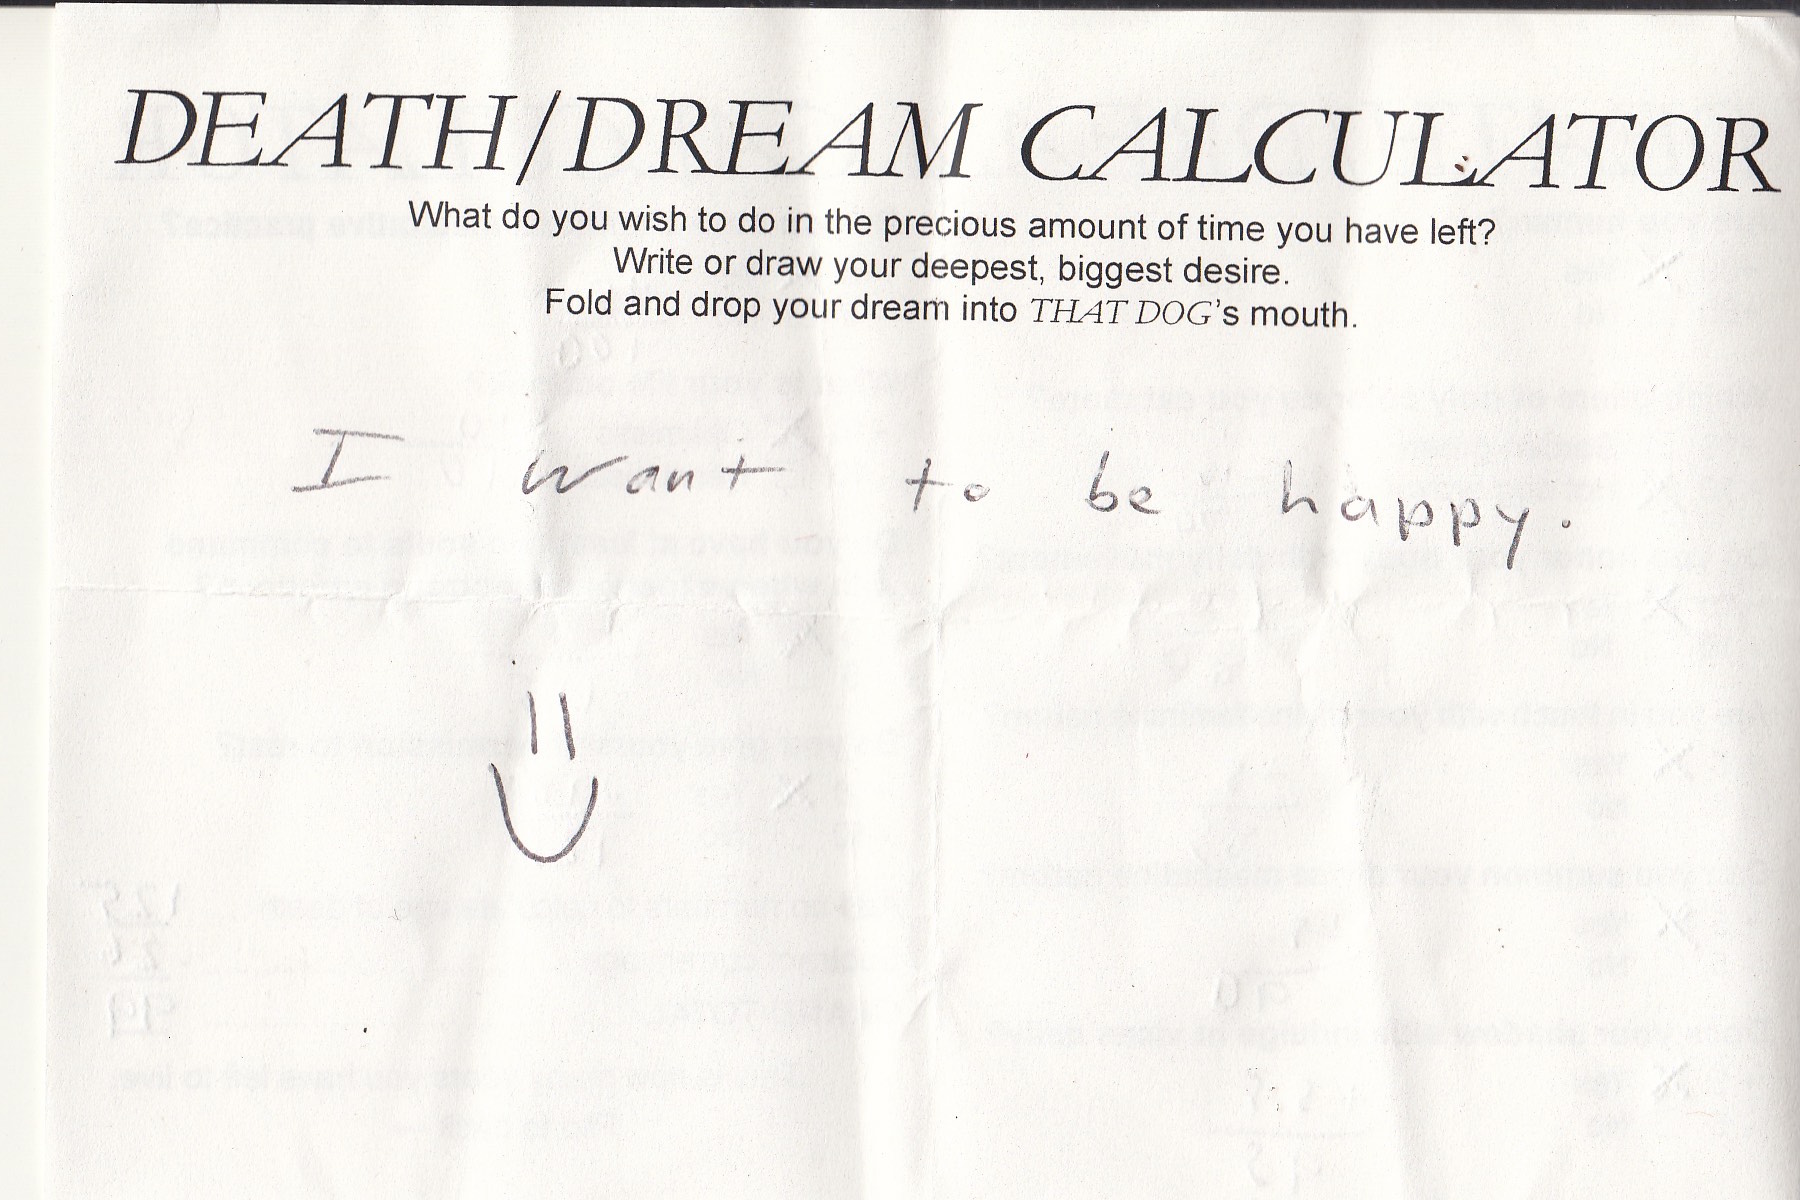 DEATH/DREAM CALCULATOR
What do you wish to do in the precious amount of time you have left?
Write or draw your deepest, biggest desire.
Fold and drop your dream into THAT DOG's mouth.
I want to be happy.